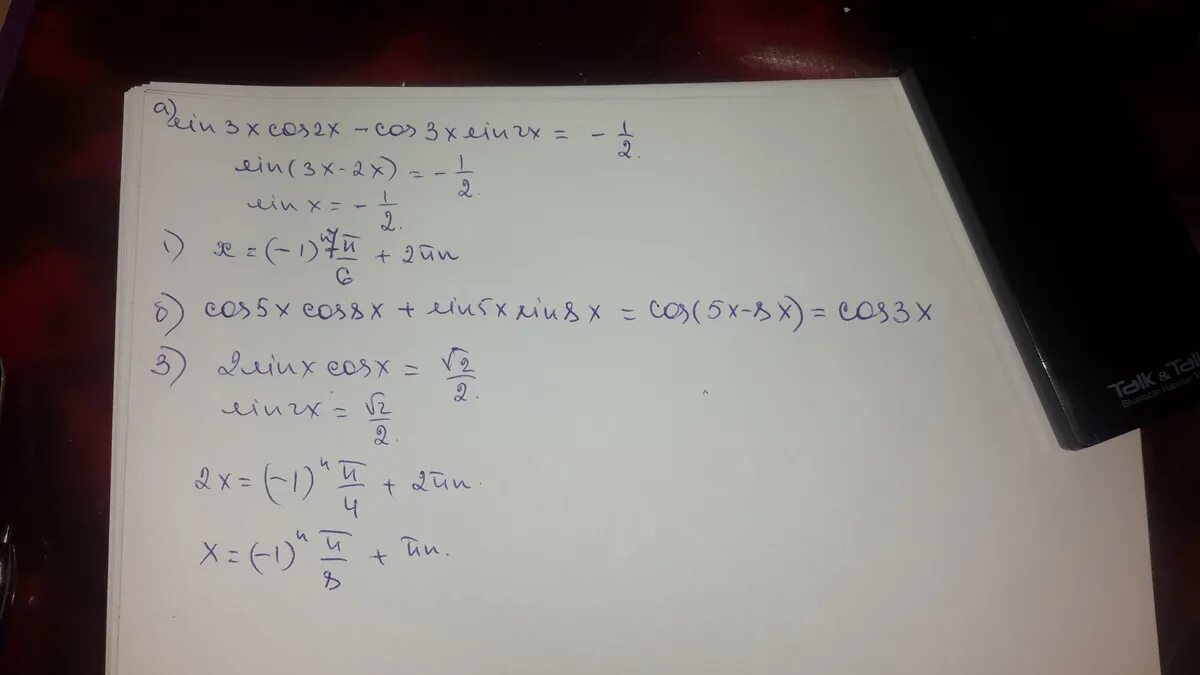 а) sin 3x cos2x - cos 3x sin 2x = - 1/2.
sin(3x-2x) = - 1/2.
sin x = - 1/2.
1) x = (-1)ⁿ 7π/6 + 2πn
б) cos5x cos8x + sin5x sin8x = cos(5x-8x) = cos3x
3) 2sinx cosx = √2/2.
sin2x = √2/2.
2x = (-1)ⁿ π/4 + 2πn.
x = (-1)ⁿ π/8 + πn.
Talk & Talk
Bluetooth